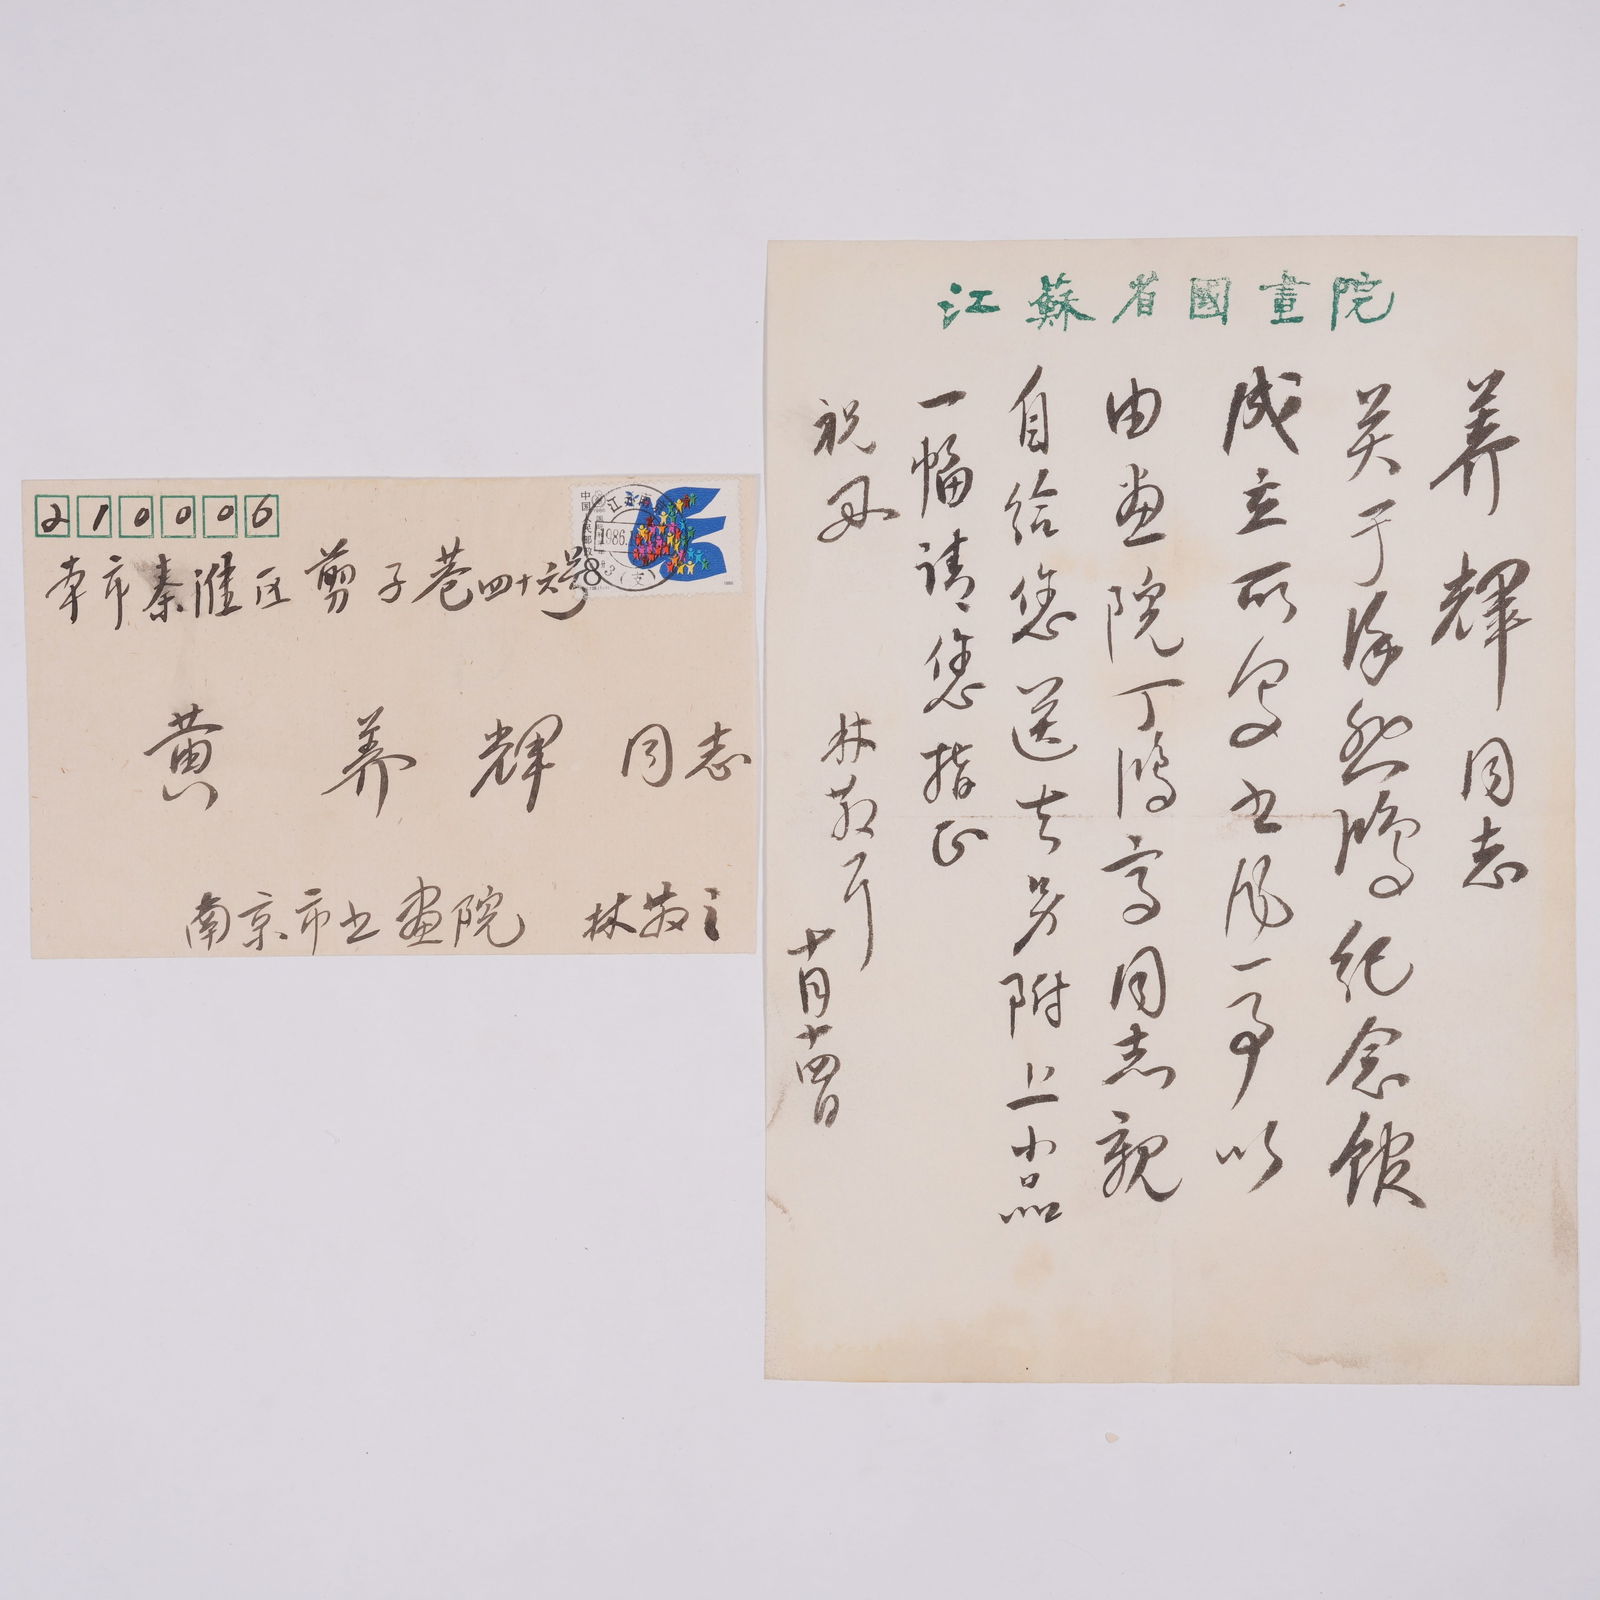 210006
本市秦淮区剪子巷四十六号
黄养辉同志
南京市书画院 林散之
中国人民邮政
8
1986.
江苏南京
3(支)
江蘇省國畫院
养辉同志
关于徐悲鸿纪念馆
成立所写书法一事以
由画院丁鸿章同志亲
自给您送去另附上小品
一幅请您指正
祝好
林散之
十月十四日